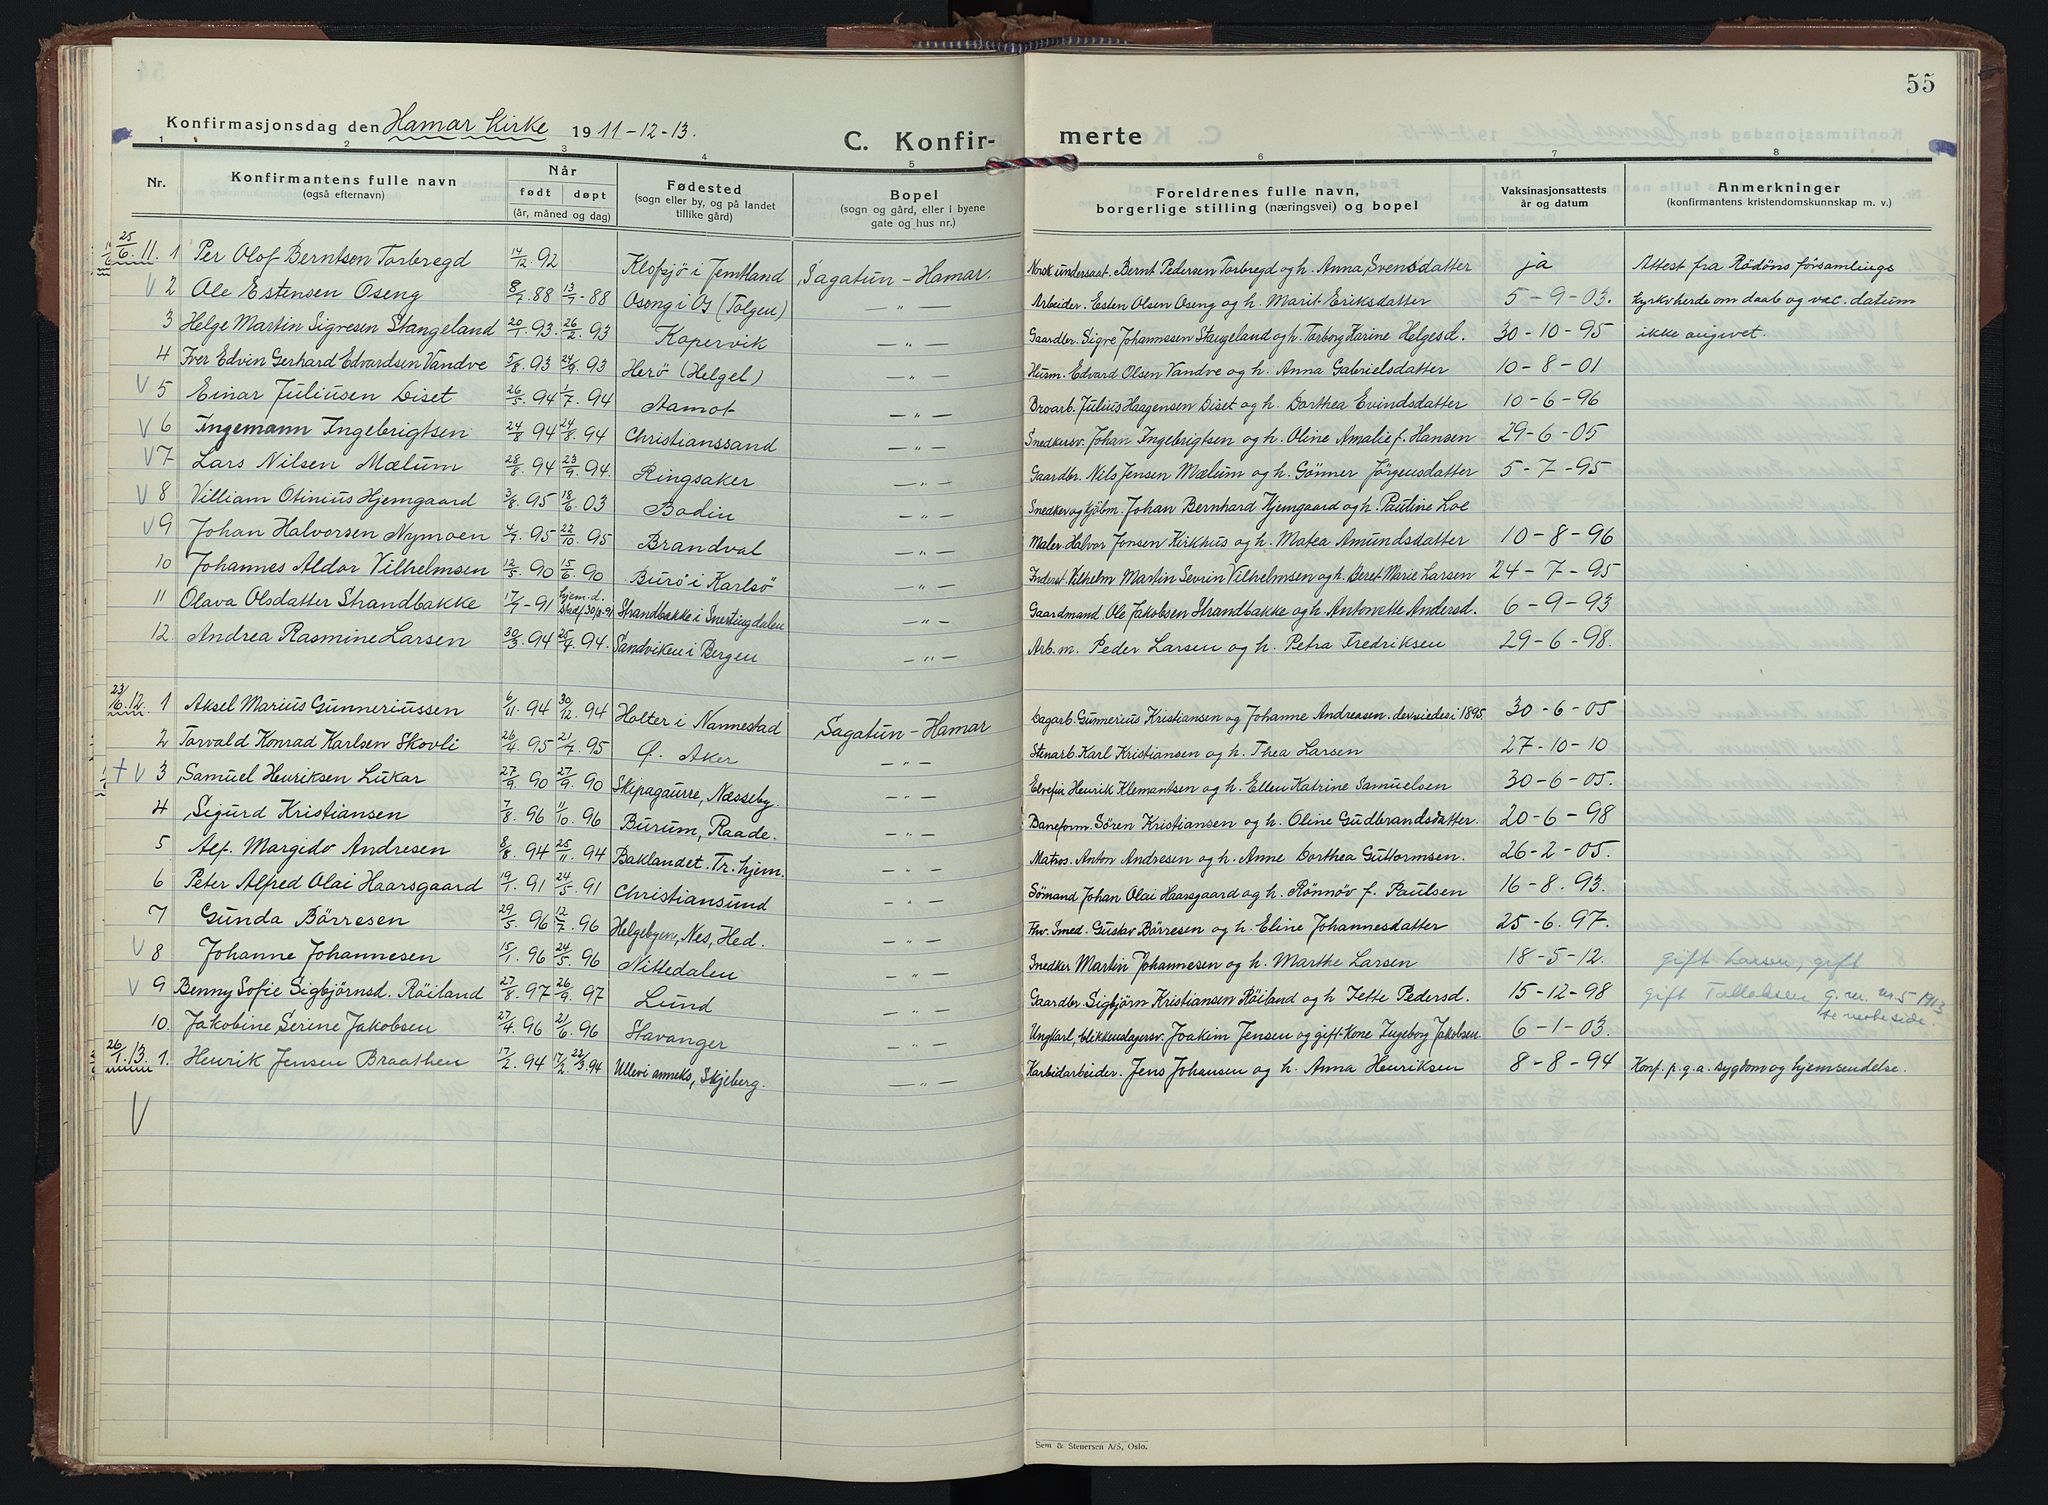 55
Konfirmasjonsdag den Hamar kirke 1911-12-13.
C. Konfir- merte
1 2 3 4 5 6 7 8
Nr. Konfirmantens fulle navn (også efternavn) Når født døpt (år, måned og dag) Fødested (sogn eller by, og på landet tillike gård) Bopel (sogn og gård, eller i byene gate og hus nr.) Foreldrenes fulle navn, borgerlige stilling (næringsvei) og bopel Vaksinasjonsattests år og datum Anmerkninger (konfirmantens kristendomskunnskap m. v.)
25/6.11. 1 Per Olof Berntsen Torbregd 14/12.92 Klofsjö i Jemtland Sagatun - Hamar. Norsk undersaat. Bernt Pedersen Torbregd og h. Anna Svensdatter ja Attest fra Rödöns församlings
V 2 Ole Estensen Oseng 8/7.88 13/7-88 Oseng i Os (Tolgen) -„- Arbeider. Esten Olsen Oseng og h. Marit Eriksdatter 5-9-03. kyrkoherde om daab og vac. datum
3 Helge Martin Sigvesen Stangeland 20/1.93. 26/2.93 Kopervik -„- Gaardbr. Sigve Johannesen Stangeland og h. Torborg Karine Helgesd. 30-10-95 ikke angivet.
4 Iver Edvin Gerhard Edvardsen Vandve 5/8.93 24/9.93 Herö (Helgel) -„- Husm. Edvard Olsen Vandve og h. Anna Gabrielsdatter 10-8-01
V 5 Einar Juliusen Diset 26/5.94 1/7.94 Aamot -„- Broarb. Julius Haagensen Diset og h. Dorthea Evindsdatter 10-6-96
V 6 Ingemann Ingebrigtsen 24/8 94 24/8.94 Christianssand -„- Snedkersv. Johan Ingebrigtsen og h. Oline Amalie f. Hansen 29-6-05
V 7 Lars Nilsen Mælum 28/8.94 23/9.94. Ringsaker -„- Gaardbr. Nils Jensen Mælum og h. Gönner Jörgensdatter 5-7-95
V 8 Villiam Otinius Hjemgaard 3/8.95 18/6.03 Bodin -„- Snedker og kjöbm. Johan Bernhard Hjemgaard og h. Pauline Loe
V 9 Johan Halvorsen Nymoen 4/7.95 22/10.95 Brandval -„- Maler Halvor Jonsen Kirkhus og h. Matea Amundsdatter 10-8-96
10 Johannes Aldor Vilhelmsen 12/5.90 15/6.90 Burö i Karlsö -„- Inderst. Vilhelm Martin Sevrin Vilhelmsen og h. Beret Marie Larsen 24-7-95
11 Olava Olsdatter Strandbakke 17/7-91 hjem.d. Strandbakke i Snertingdalen -„- Gaardmand Ole Jakobsen Strandbakke og h. Antonette Andersd. 6-9-93
12. Andrea Rasmine Larsen 30/3.94 25/7.94. Sandviken i Bergen -„- Arb.m. Peder Larsen og h. Petra Fredriksen 29-6-98.
1 Aksel Marius Gunneriussen 6/11.94 30/12.94 Holter i Nannestad Sagatun - Hamar Dagarb. Gunnerius Kristiansen og Johanne Andreasen. 30-6-05
2 Torvald Konrad Karlsen Skovli 26/4.95 21/7.95 Ø. Aker -„- Stenarb. Karl Kristiansen og h. Thea Larsen 27-10-10
† V 3 Samuel Henriksen Lukar 27/9.90 27/9.90 Skipagaurre, Næsseby. -„- Elvefin Henrik Klemantsen og h. Ellen Katrine Samuelsen 30-6-05.
4 Sigurd Kristiansen 7/8 96 11/10.96 Burum, Raade. -„- Baneform. Sören Kristiansen og h. Oline Gudbrandsdatter. 20-6-98
5 Alf Margido Andresen 8/8.94 25/11.94 Baklandet. Tr.hjem. -„- Matros. Anton Andresen og h. Anne Dorthea Guttormsen. 26-2-05.
6 Peter Alfred Olai Haarsgaard 19/1.91 24/5.91 Christiansund -„- Sömand Johan Olai Haarsgaard og h. Rönnöv f. Paulsen 16-8.93.
7 Gunda Börresen 29/5.96 12/7.96 Helgebyen, Nes, Hed. -„- Fhv. Smed. Gustav Börresen og h. Eline Johannesdatter 25-6.97.
V 8 Johanne Johannesen 15/1.96 24/5.96 Nittedalen -„- Snedker Martin Johannesen og h. Marthe Larsen 18-5-12. gift Larsen, gift
V 9 Benny Sofie Sigbjörnsd. Röiland 27/8.97 26/9.97 Lund -„- Gaardbr Sigbjörn Kristiansen Röiland og h Jette Pedersd. 15-12-98 gift
10. Jakobine Serine Jakobsen 27/4.96 21/6.96 Stavanger -„- Ungkarl, blikkenslagersv. Joakim Jensen og gift Kone Ingeborg Jakobsen. 6-1-03.
26/1.13. 1. Henrik Jensen Braathen 17/2.94 22/3.94 Ullerøi anneks, Skjeberg. -„- Karbidarbeider. Jens Johansen og h. Anna Henriksen 8-8-94 Konf. p.g.a. sygdom og hjemsendelse.
V
Sem & Stenersen A/S, Oslo.